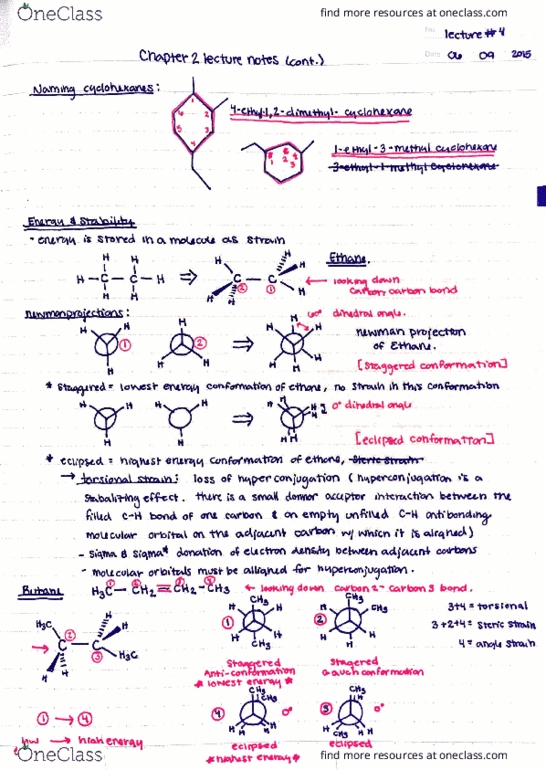 OneClass
find more resources at oneclass.com
No. lecture #4
Chapter 2 lecture notes (cont.)
Date 06 09 2015
Naming cyclohexanes:
1
6 2
5 3
4
4-ethyl-1,2-dimethyl-cyclohexane
1-ethyl-3-methyl cyclohexane
3-ethyl-1-methyl cyclohexane
Energy & Stability
- energy is stored in a molecule as strain
Ethane.
H H
H-C-C-H
H H
⇒
H H
C - C
② ①
H H
← looking down
carbon, carbon bond
newman projections:
60° dihedral angle.
H H H
① ② ⇒
newman projection
of Ethane.
[staggered conformation]
* staggered = lowest energy conformation of ethane, no strain in this conformation
H H H H H
⇒
0° dihedral angle
[eclipsed conformation]
* eclipsed = highest energy conformation of ethane, steric strain
→ torsional strain: loss of hyperconjugation (hyperconjugation is a
stabalizing effect. there is a small donner acceptor interaction between the
filled C-H bond of one carbon & an empty unfilled C-H antibonding
molecular orbital on the adjacent carbon w/ which it is alligned)
- sigma & sigma* donation of electron density between adjacent carbons
- molecular orbitals must be alligned for hyperconjugation.
Butane
H₃C - CH₂ = CH₂ - CH₃
← looking down carbon 2 - carbon 3 bond.
H₃C
C - C
② ③
H H
H₃C
① CH₃ H H H H CH₃
② CH₃ H CH₃ H H H
3+4 = torsional
3+2+4 = steric strain
4 = angle strain
staggered
Anti-conformation
* lowest energy *
stagered
Gauch conformation
① → ④
low → high energy
④ CH₃ CH₃ 0°
H H H H
eclipsed
* highest energy *
③ CH₃ H 0°
H H CH₃ H
eclipsed
OneClass
find more resources at oneclass.com